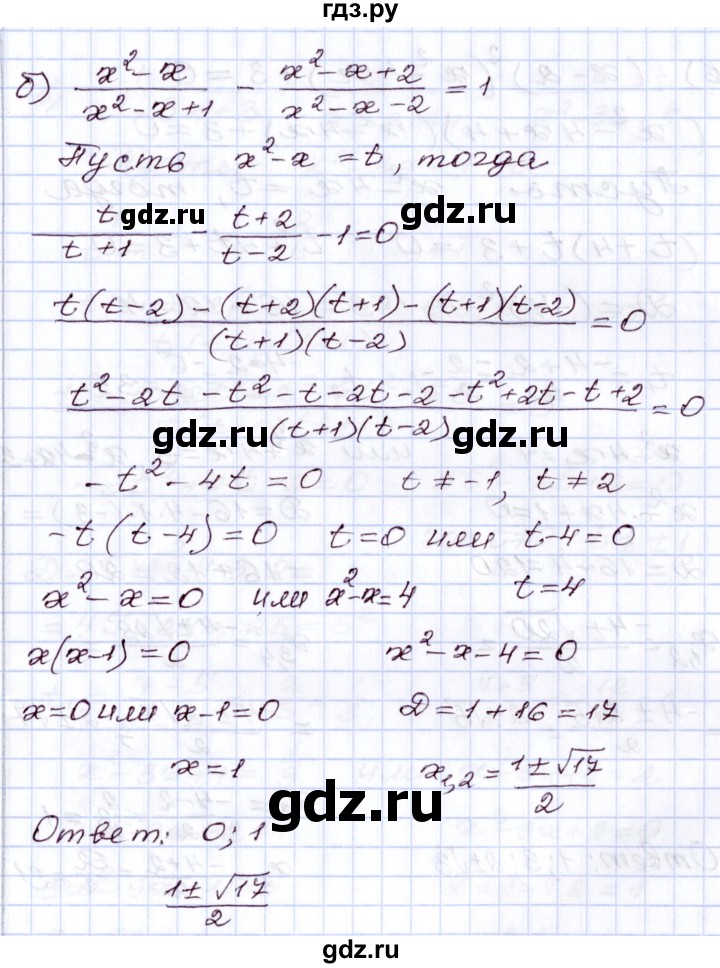 гдз.ру
б) (x²-x)/(x²-x+1) - (x²-x+2)/(x²-x-2) = 1
Пусть x²-x = t, тогда
gdz.ru gdz.ru
t/(t+1) - (t+2)/(t-2) - 1 = 0
(t(t-2) - (t+2)(t+1) - (t+1)(t-2))/((t+1)(t-2)) = 0
(t²-2t - t²-t-2t-2-t²+2t-t+2)/((t+1)(t-2)) = 0
gdz.ru gdz.ru
-t²-4t = 0 t ≠ -1, t ≠ 2
-t(t-4) = 0 t=0 или t-4=0
x²-x=0 или x²-x=4 t=4
x(x-1) = 0 x²-x-4=0
x=0 или x-1=0 D = 1+16 = 17
x=1 x₁,₂ = (1±√17)/2
gdz.ru
Ответ: 0; 1
(1±√17)/2
gdz.ru